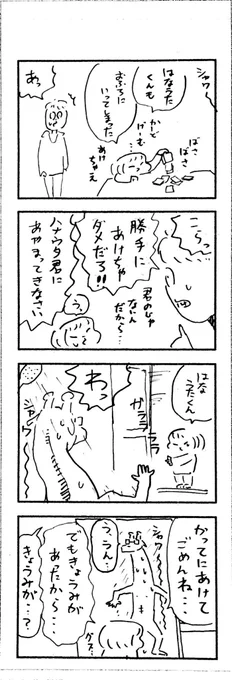 シャワー
はなうた
くんも
かーど
げーむ
おふろに
いってしまった
あけ
ちゃえ
ばさ
ばさ
あっ
こらっ
勝手に
あけちゃ
ダメだろ!!
君のじゃ
ないん
だから…
ハナウタ君に
あやまってきなさい
う
はな
うたくん
ガララ
ララ
わっ
シャワー
かってにあけて
ごめんね…
シャワー
う、うん…
でもきょうみが
あったから…
きょうみが
…?